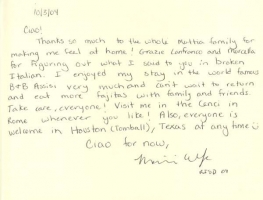 10/3/04
Ciao!
Thanks so much to the whole Mattia family for
making me feel at home! Grazie Lanfranco and Marcella
for figuring out what I said to you in broken
Italian. I enjoyed my stay in the world famous
B+B Assisi very much and can't wait to return
and eat more fajitas with family and friends.
Take care, everyone! Visit me in the Cenci in
Rome whenever you like! Also, everyone is
welcome in Houston (Tomball), Texas at any time
Ciao for now,